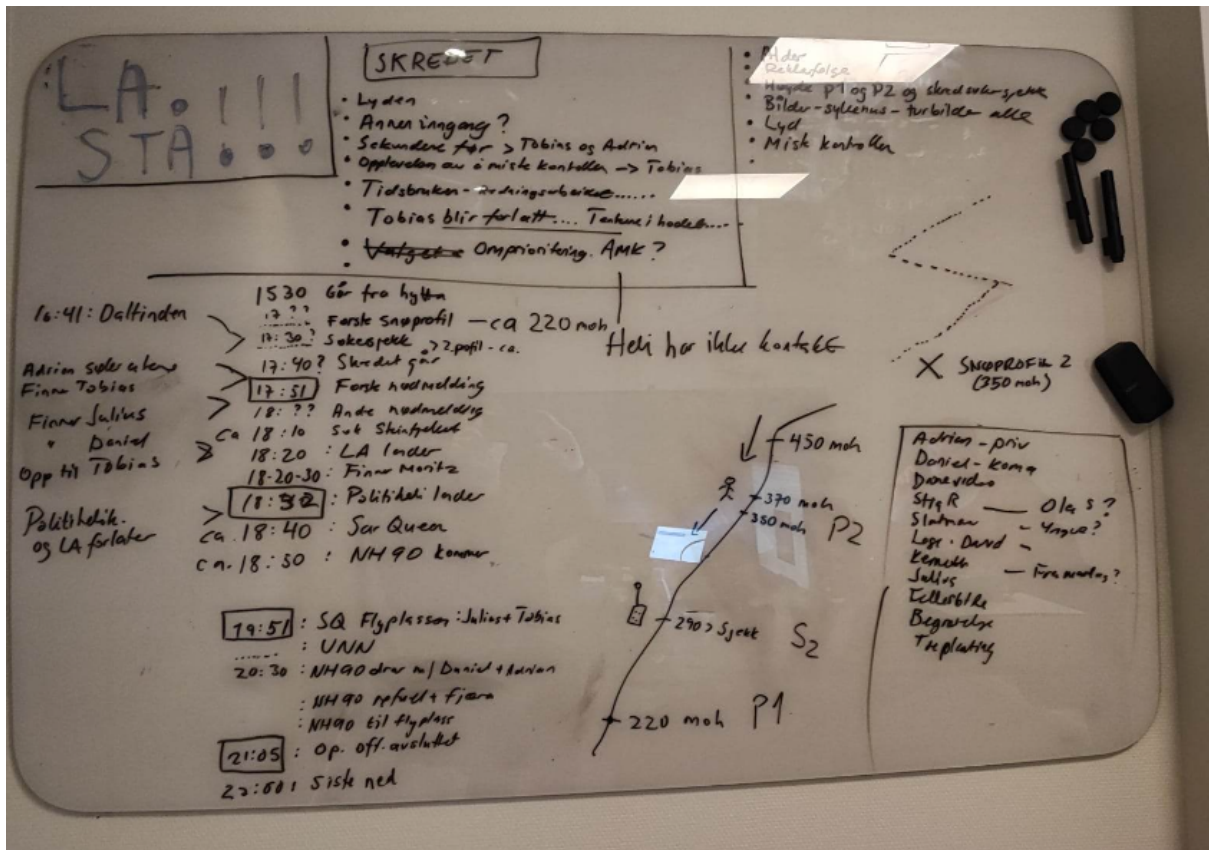 LA.!!!
STA...
SKREDET
• Lyden
• Annen inngang?
• Sekundene før > Tobias og Adrian
• Opplevelsen av å miste kontrollen -> Tobias
• Tidsbruken - redningsarbeidet......
• Tobias blir forlatt.... Tankene i hodet.....
• Omprioritering. AMK?
• Alder
• Rekkefølge
• Høyde P1 og P2 og
• Bilder - sykehus - turbilder alle
• Lyd
• Misk kontrollen
16:41: Daltinden
Finner Tobias
Finner Julius
" Daniel
Opp til Tobias
Politihelik.
og LA forlater
1530 Går fra hytta
17?? Første snøprofil - ca 220 moh
17:30? Søkesjekk > 2.pofil - ca.
17:40? Skredet går
17:51 Første nødmelding
18:?? Andre nødmelding
ca 18:10
18:20 : LA lander
18-20-30: Finner Moritz
18:32 : Politiheli lander
ca. 18:40 : Sar Queen
ca. 18:50 : NH90 kommer
19:51 : SQ Flyplassen: Julius + Tobias
: UNN
20:30 : NH90 drar m/ Daniel + Adrian
: NH90 refuel + Fjæra
: NH90 til flyplass
21:05 : Op. off. avsluttet
Siste ned
Heli har ikke kontakt
X SNØPROFIL 2
(350 moh)
450 moh
370 moh
350 moh P2
290 > Sjekk S2
220 moh P1
Adrian - priv
Daniel - koma
Dronevideo
Ola S?
- Yngve?
Kenneth
Julius
Fellesbilde
Begravelse